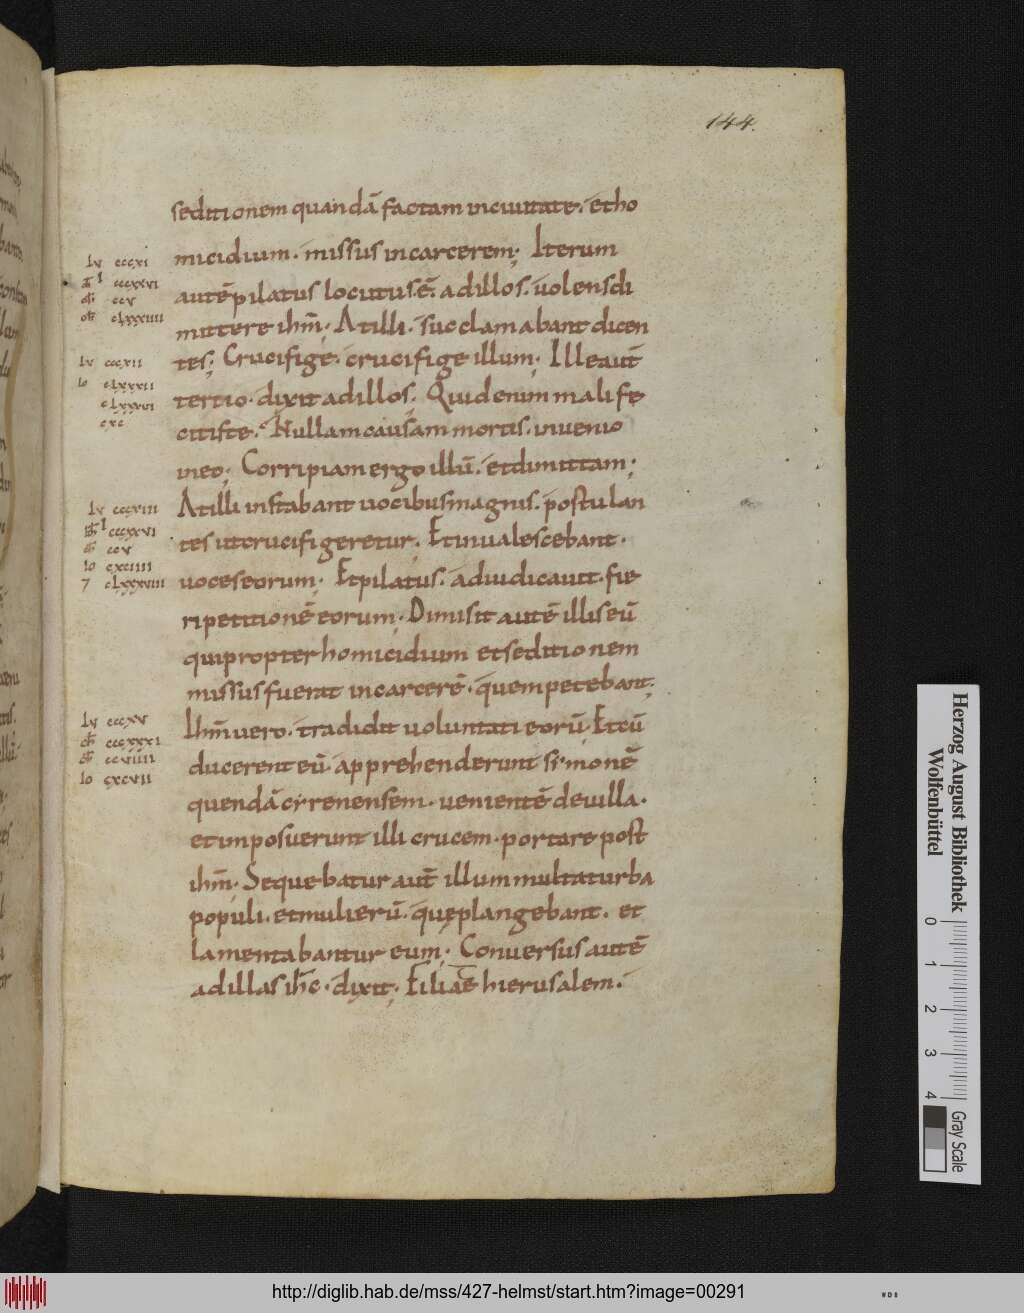 144.
seditionem quandā factam inciuitate. etho
micidium. missus incarcerem; Iterum
autē pilatus locutus ē. adillos. uolens di
mittere ihm̄; Atilli. succlamabant dicen
tes; Crucifige. crucifige illum; Ille aut̄
tertio. dixit adillos; Quid enim mali fe
cit iste. Nullam causam mortis. inuenio
ineo; Corripiam ergo illū. et dimittam;
Atilli instabant uocibus magnis. postulan
tes ut crucifigeretur. Et inualescebant.
uoces eorum; Et pilatus. adiudicauit. fie
ri petitionē eorum; Dimisit autē illis eū
qui propter homicidium et seditionem
missus fuerat incarcerē. quem petebant;
Ihm̄ uero. tradidit uoluntati eorū; Et cū
ducerent eū. apprehenderunt simonē
quendā cyrenensem. uenientē deuilla.
et imposuerunt illi crucem. portare post
ihm̄; Sequebatur aut̄ illum multa turba
populi. et mulierū. quę plangebant. et
lamentabantur eum; Conuersus autē
adillas ihc̄. dixit; Filiae hierusalem.
lu cccxi
cccxxvi
ccv
clxxxiiii
lu cccxii
io clxxxii
clxxxvi
cxc
lu cccxiii
cccxxvi
ccv
io cxciiii
clxxxviii
lu cccxv
cccxxxi
ccviiii
io cxcvii
Herzog August Bibliothek
Wolfenbüttel
0 1 2 3 4
Gray Scale
http://diglib.hab.de/mss/427-helmst/start.htm?image=00291